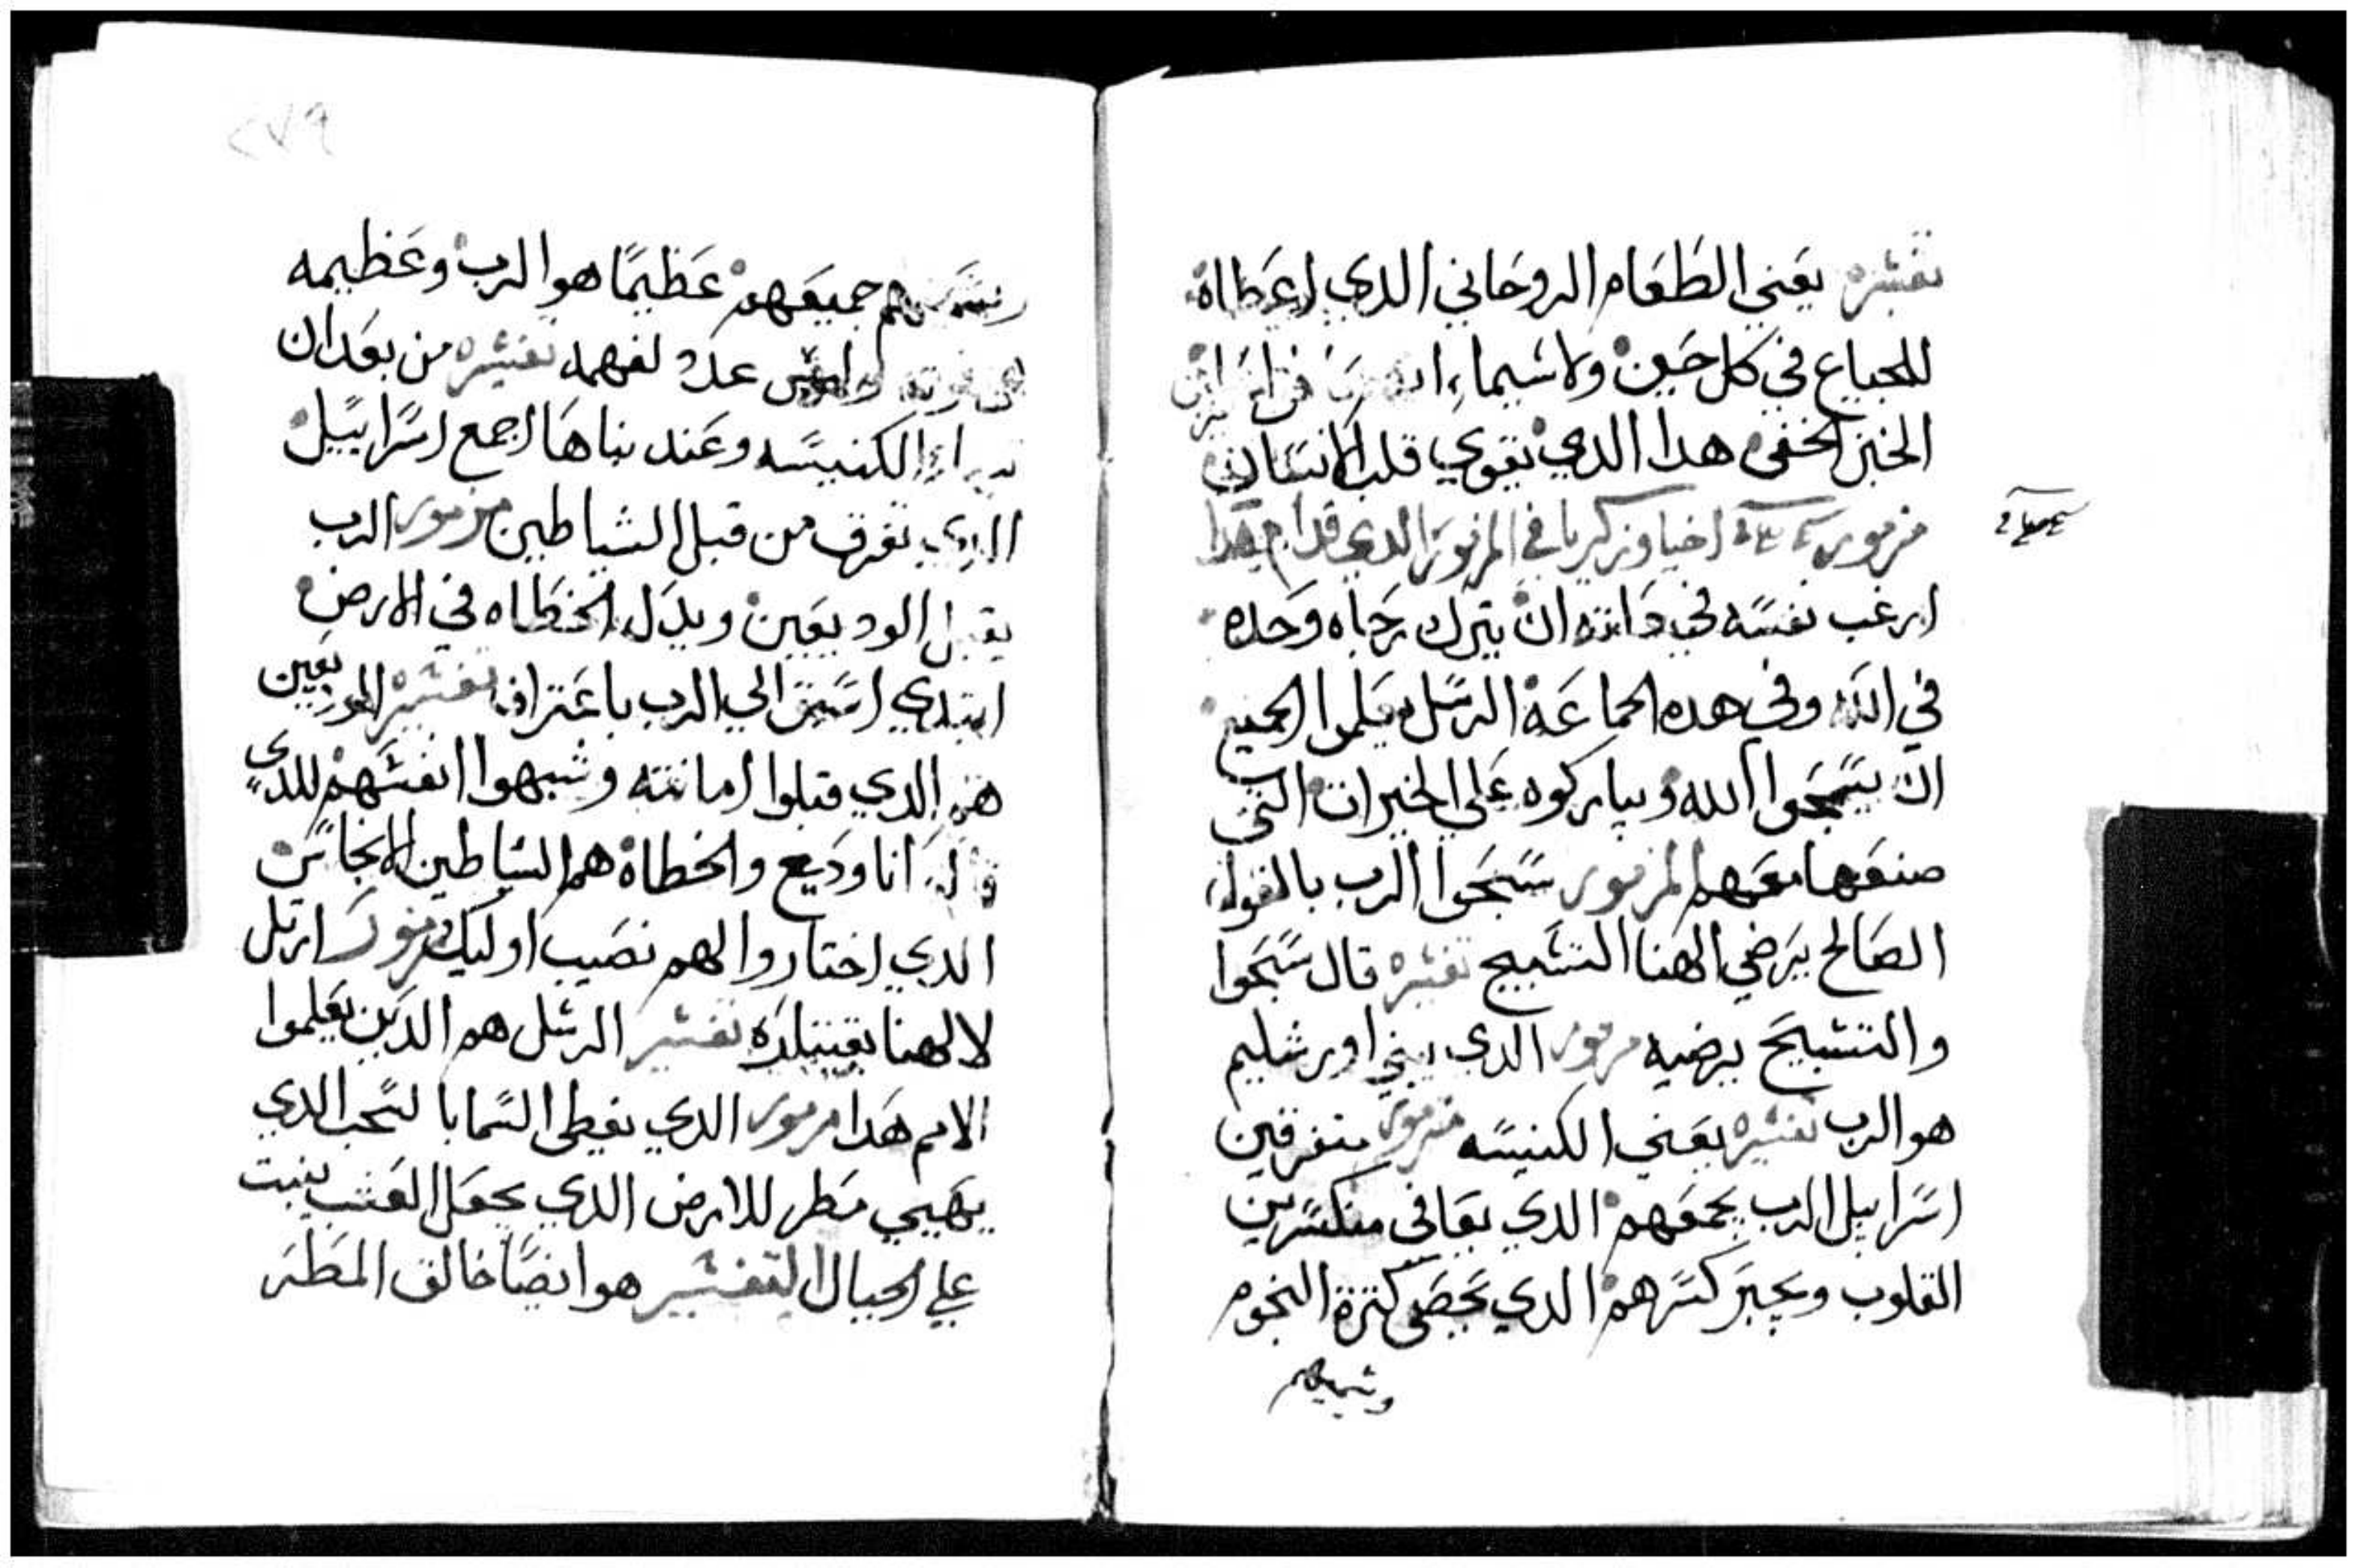 تفسيره يعني الطعام الروحاني الدي اعطاه
للجياع في كل حين ولاسيما
الخبز الخفي هدا الدي يقوي قلب الانسان
مزمور اخيا وزكريا في المزمور الدي قدام هدا
ارغب نفسه في داته ان يترك رجاه وحده
في الله وفي هده الجماعة الرسل يعلموا الجميع
ان يسبحوا الله ويباركوه علي الخيرات التي
صنعها معهم المزمور سبحوا الرب بالقول
الصالح يرضي الهنا التسبيح تفسيره قال سبحوا
والتسبيح يرضيه مزمور الدي يبني اورشليم
هو الرب تفسيره يعني الكنيسه مزمور متفرقين
اسراييل الرب يجمعهم الدي يعافي منكسرين
القلوب ويجبر كسرهم الدي يحصي كترة النجوم
ويسميهم
٢٧٩
جميعهم عظيما هو الرب وعظيمه
وليس عدد لفهمه تفسيره من بعد ان
الكنيسه وعند بناها اجمع اسراييل
الدي تفرق من قبل الشياطين مزمور الرب
يقبل الوديعين ويدل الخطاه في الارض
ابتدي الي الرب باعتراف تفسيره الوديعين
هم الدي قبلوا امانته وشبهوا انفسهم للدي
قال انا وديع والخطاة هم الشياطين الانجاس
الدي اختاروا لهم نصيب اوليك مزمور ارتل
لالهنا بقيتارة تفسير الرسل هم الدين يعلموا
الامم هدا مزمور الدي يغطي السما بالسحب الدي
يهيي مطر للارض الدي يجعل العشب ينبت
علي الجبال التفسير هو ايضا خالق المطر